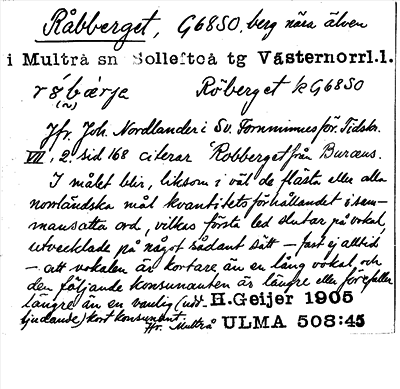 Råbberget, G68SO, berg nära älven
i Multrå sn Sollefteå tg Västernorrl.l.
Röberget k G68SO
Jfr. Joh. Nordlander i Sv. Fornminnesför. Tidskr.
VII, 2, sid 168 citerar Robberget från Buraeus.
I målet blir, liksom i väl de flästa eller alla
norrländska mål kvantitetsförhållandet i sam-
mansatta ord, vilkas första led slutar på vokal,
utvecklade på något sådant sätt – fast ej alltid
– att vokalen är kortare än en lång vokal, och
den följande konsonanten är längre eller förefaller
längre än en vanlig (udd- H.Geijer 1905
ljudande) kort konsonant.
Fr. Multrå ULMA 508:45